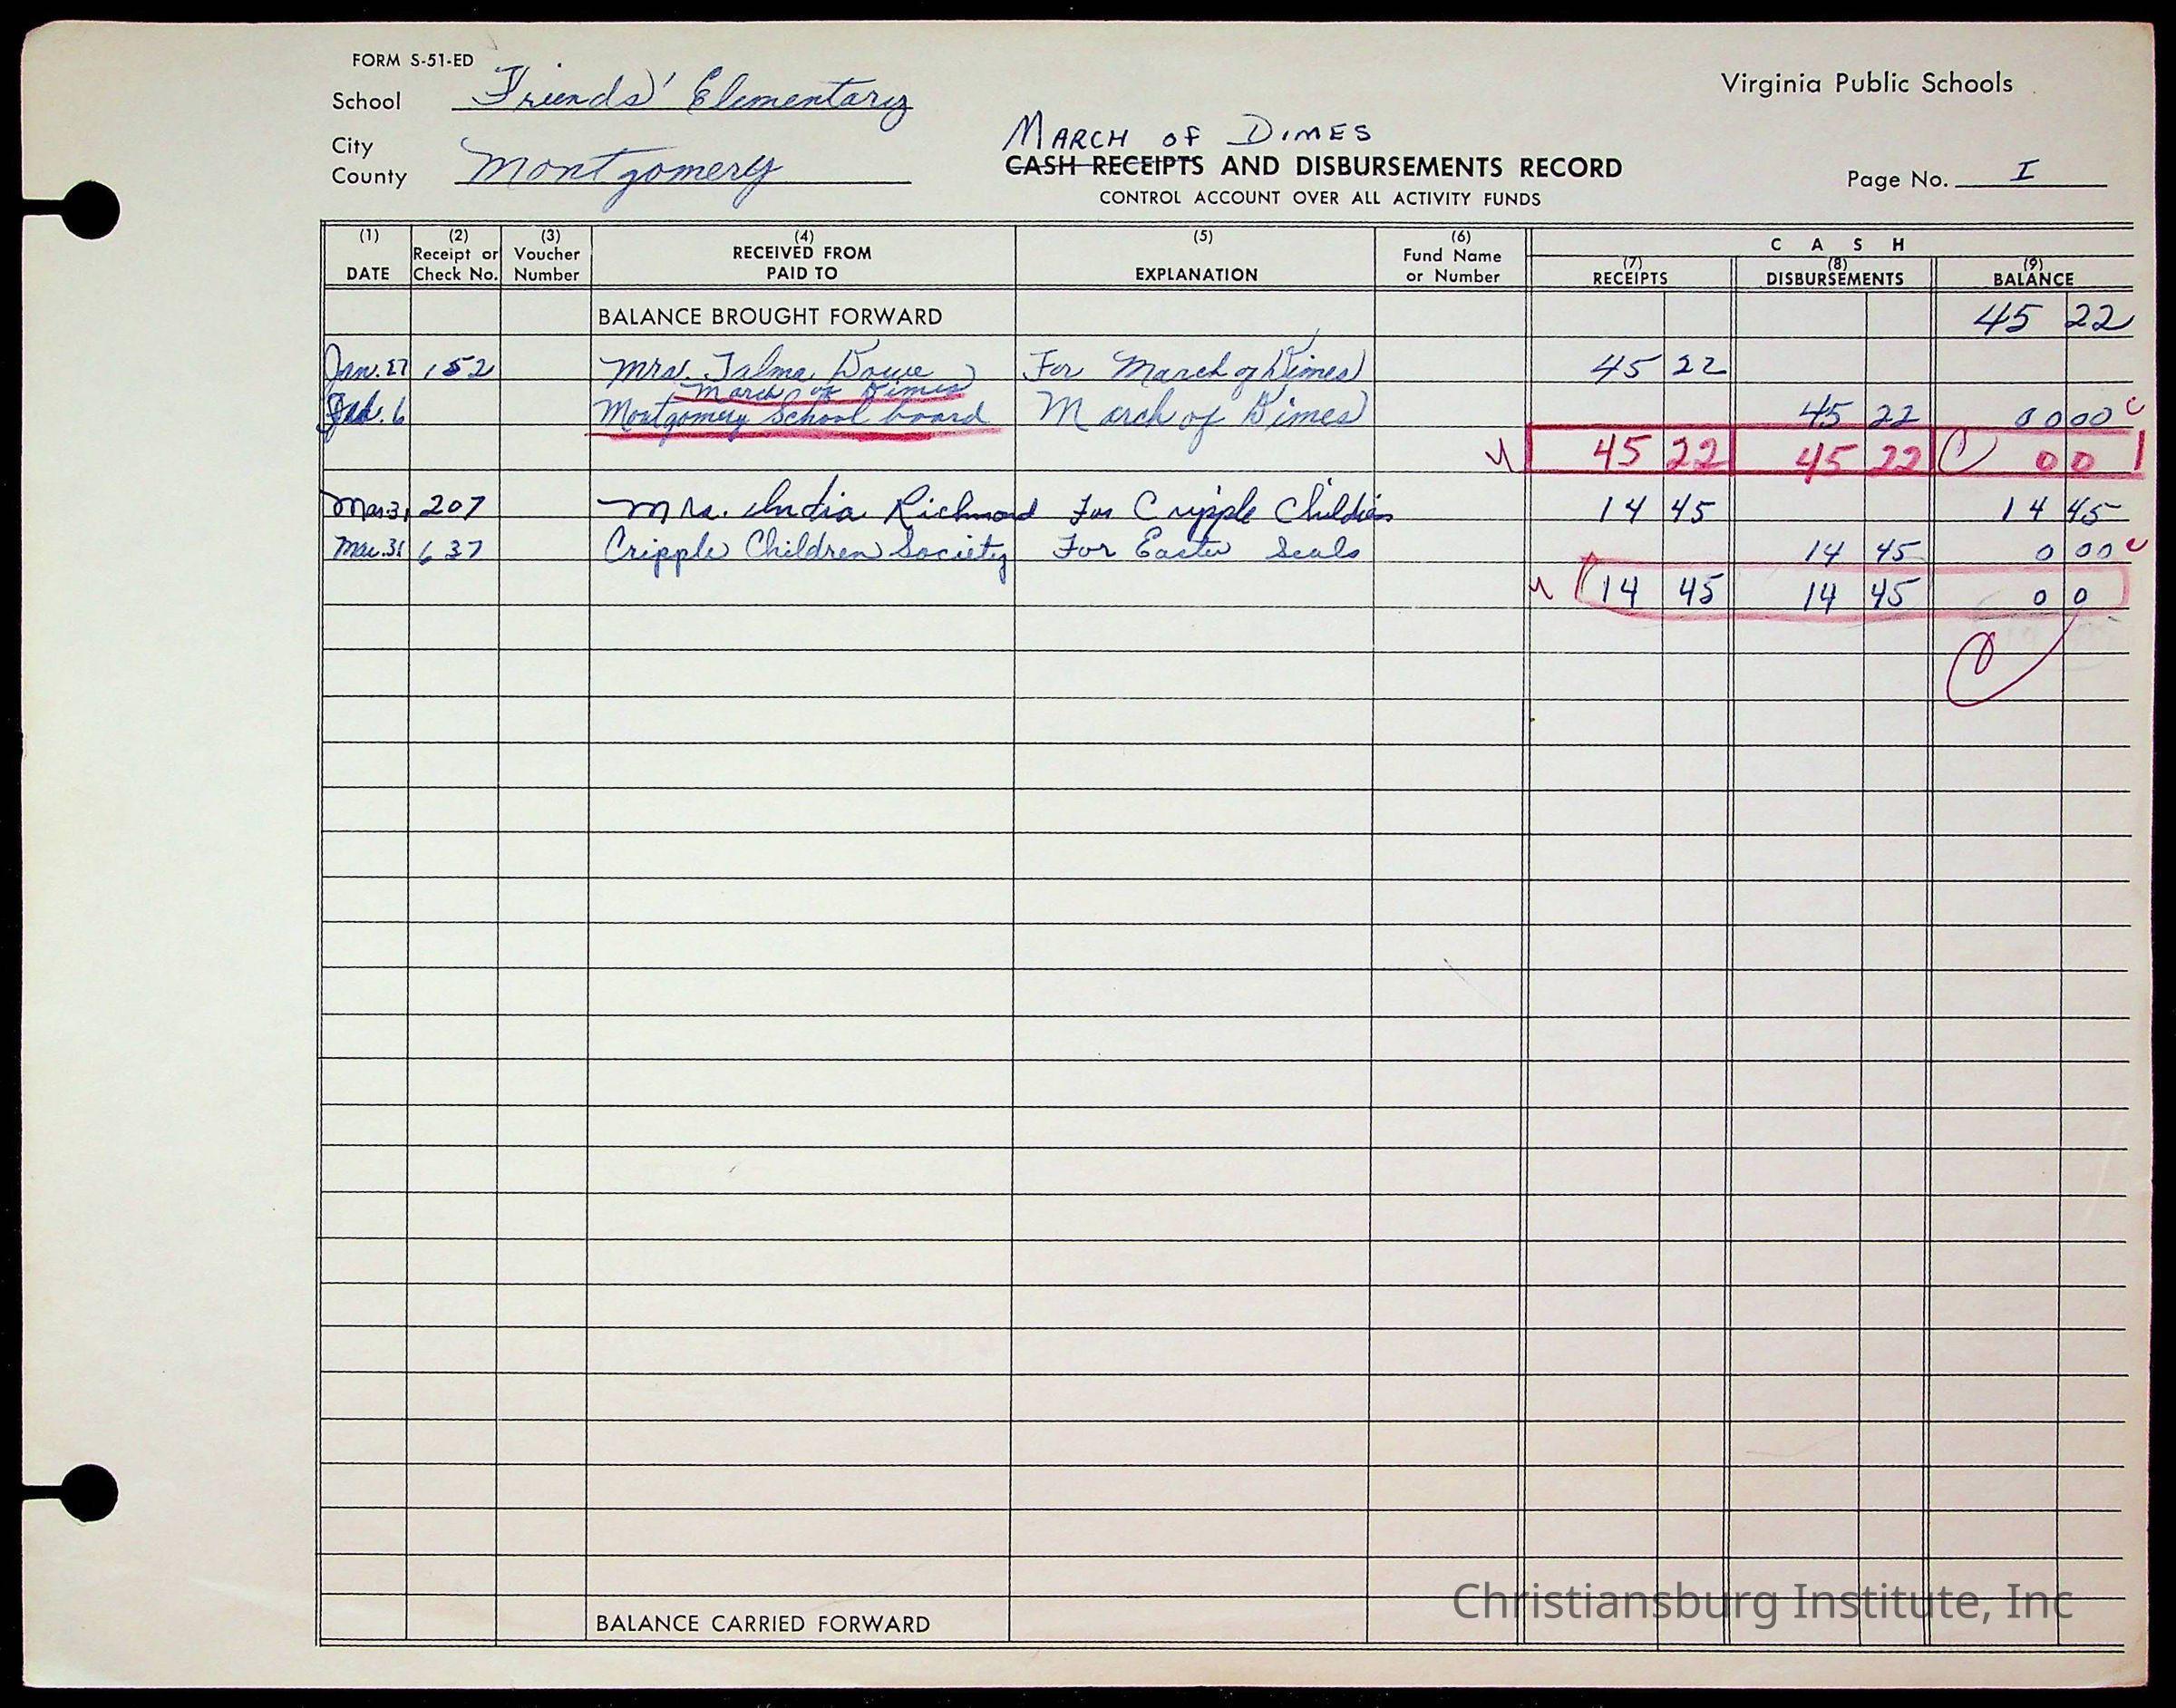 FORM S-51-ED
School Friends' Elementary
Virginia Public Schools
City
County Montgomery
MARCH OF DIMES
CASH RECEIPTS AND DISBURSEMENTS RECORD
Page No. I
CONTROL ACCOUNT OVER ALL ACTIVITY FUNDS
(1) DATE
(2) Receipt or Check No.
(3) Voucher Number
(4) RECEIVED FROM PAID TO
(5) EXPLANATION
(6) Fund Name or Number
CASH
(7) RECEIPTS
(8) DISBURSEMENTS
(9) BALANCE
BALANCE BROUGHT FORWARD 45 22
Jan. 27 152 Mrs. Talma Dowe For March of Dimes 45 22
March of Dimes
Feb. 6 Montgomery School board March of Dimes 45 22 00 00 c
45 22 45 22 C 00
Mar. 31 207 Mrs. India Richmond For Cripple Children 14 45 14 45
Mar. 31 637 Cripple Children Society For Easter Seals 14 45 0 00 c
14 45 14 45 00
C
BALANCE CARRIED FORWARD
Christiansburg Institute, Inc